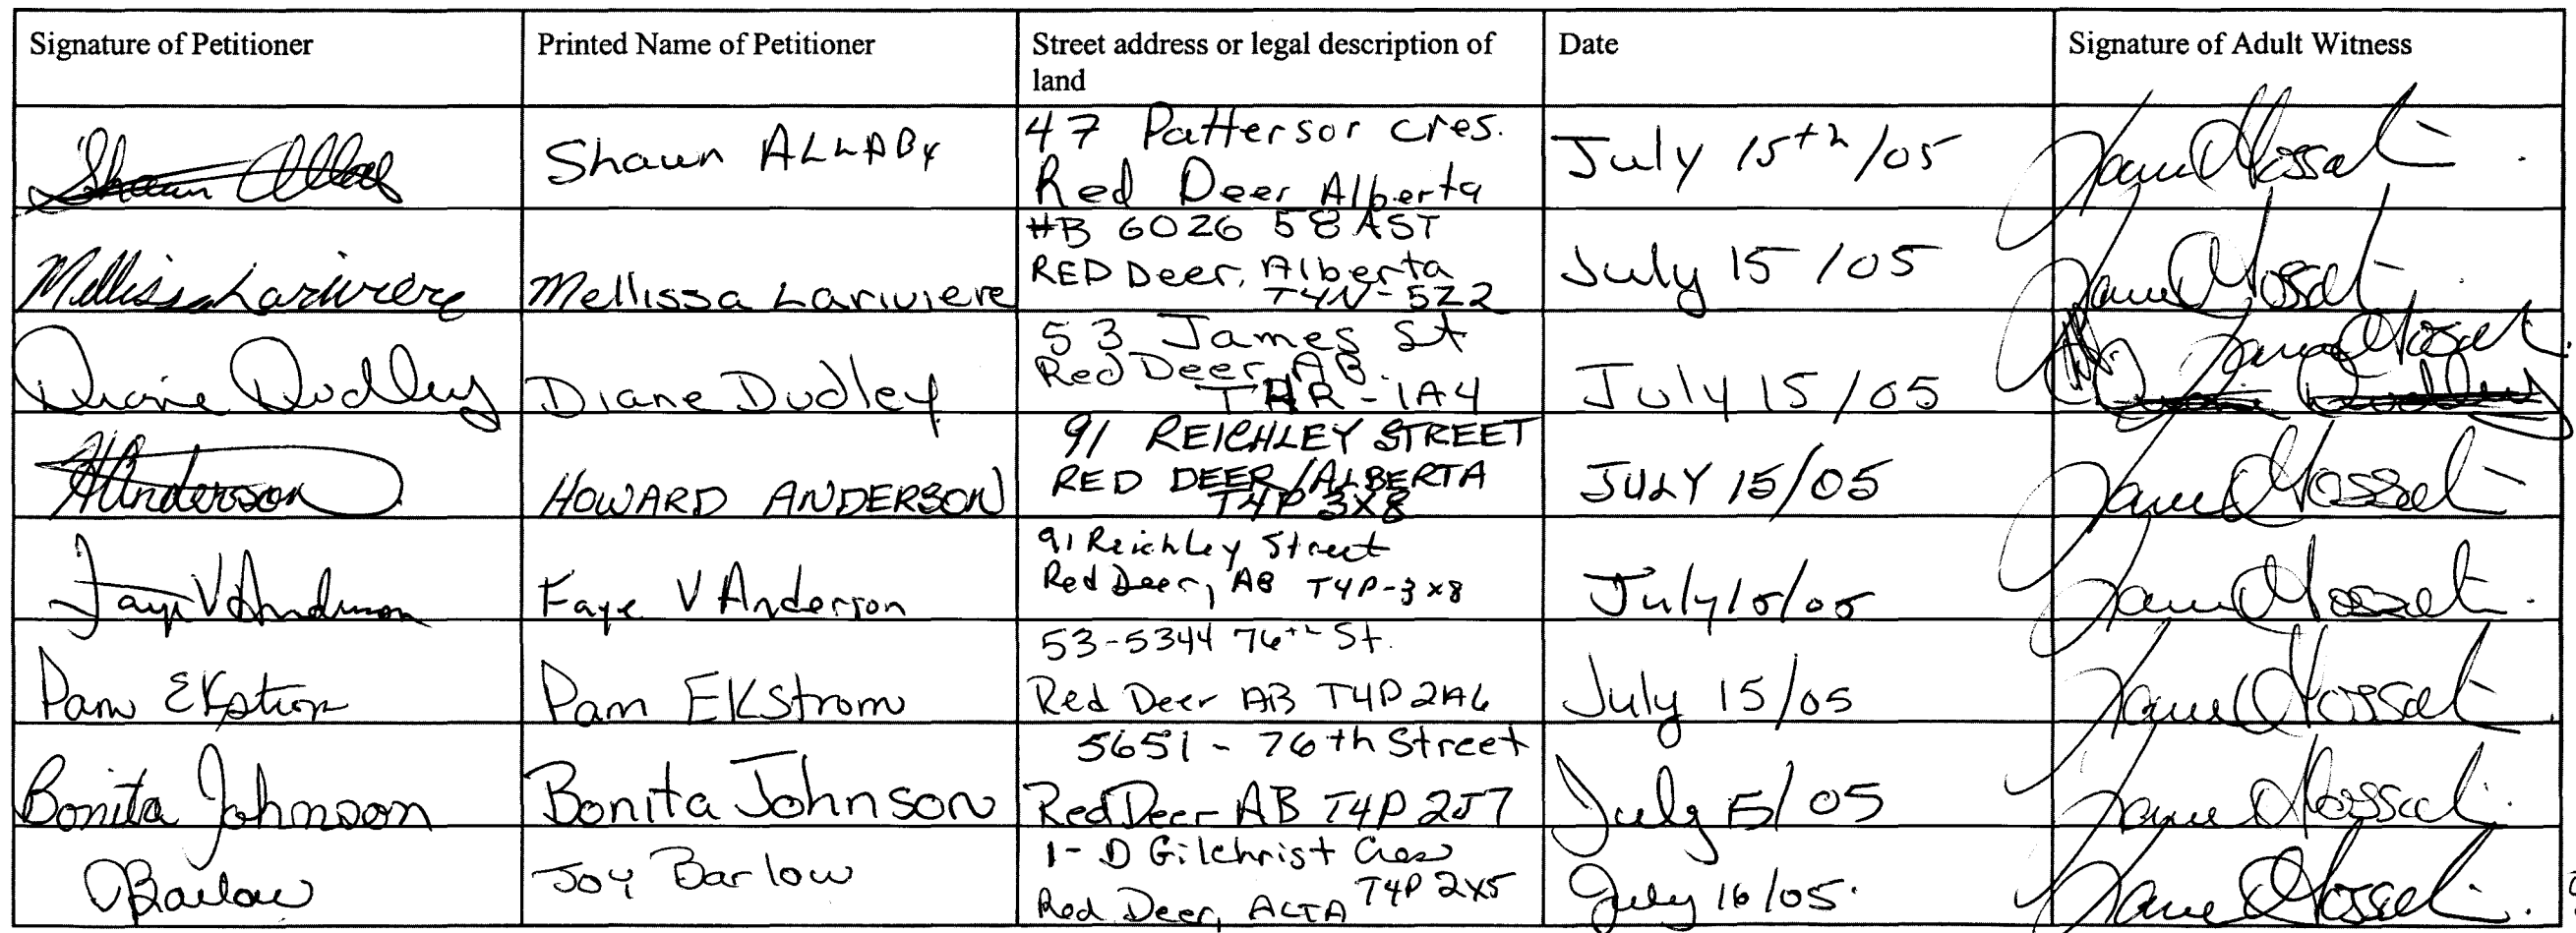 Signature of Petitioner
Printed Name of Petitioner
Street address or legal description of
land
Date
Signature of Adult Witness
Shaun ALLABY
47 Patterson cres.
Red Deer Alberta
July 15th/05
Mellissa Lariviere
Mellissa Lariviere
#B 6026 58 A ST
RED Deer, Alberta
T4N-5Z2
July 15/05
Diane Dudley
Diane Dudley
53 James St
Red Deer AB.
T4R-1A4
July 15/05
HAnderson
HOWARD ANDERSON
91 REICHLEY STREET
RED DEER/ALBERTA
T4P 3X8
JULY 15/05
Faye V Anderson
Faye V Anderson
91 Reichley Street
Red Deer, AB T4P-3x8
July 15/05
Pam Ekstrom
Pam EKstrom
53-5344 76th St.
Red Deer AB T4P 2A6
July 15/05
Bonita Johnson
Bonita Johnson
5651 - 76th Street
Red Deer AB T4P 2J7
July 15/05
JBarlow
Joy Barlow
1-D Gilchrist Cres
Red Deer, ALTA T4P 2X5
July 16/05.